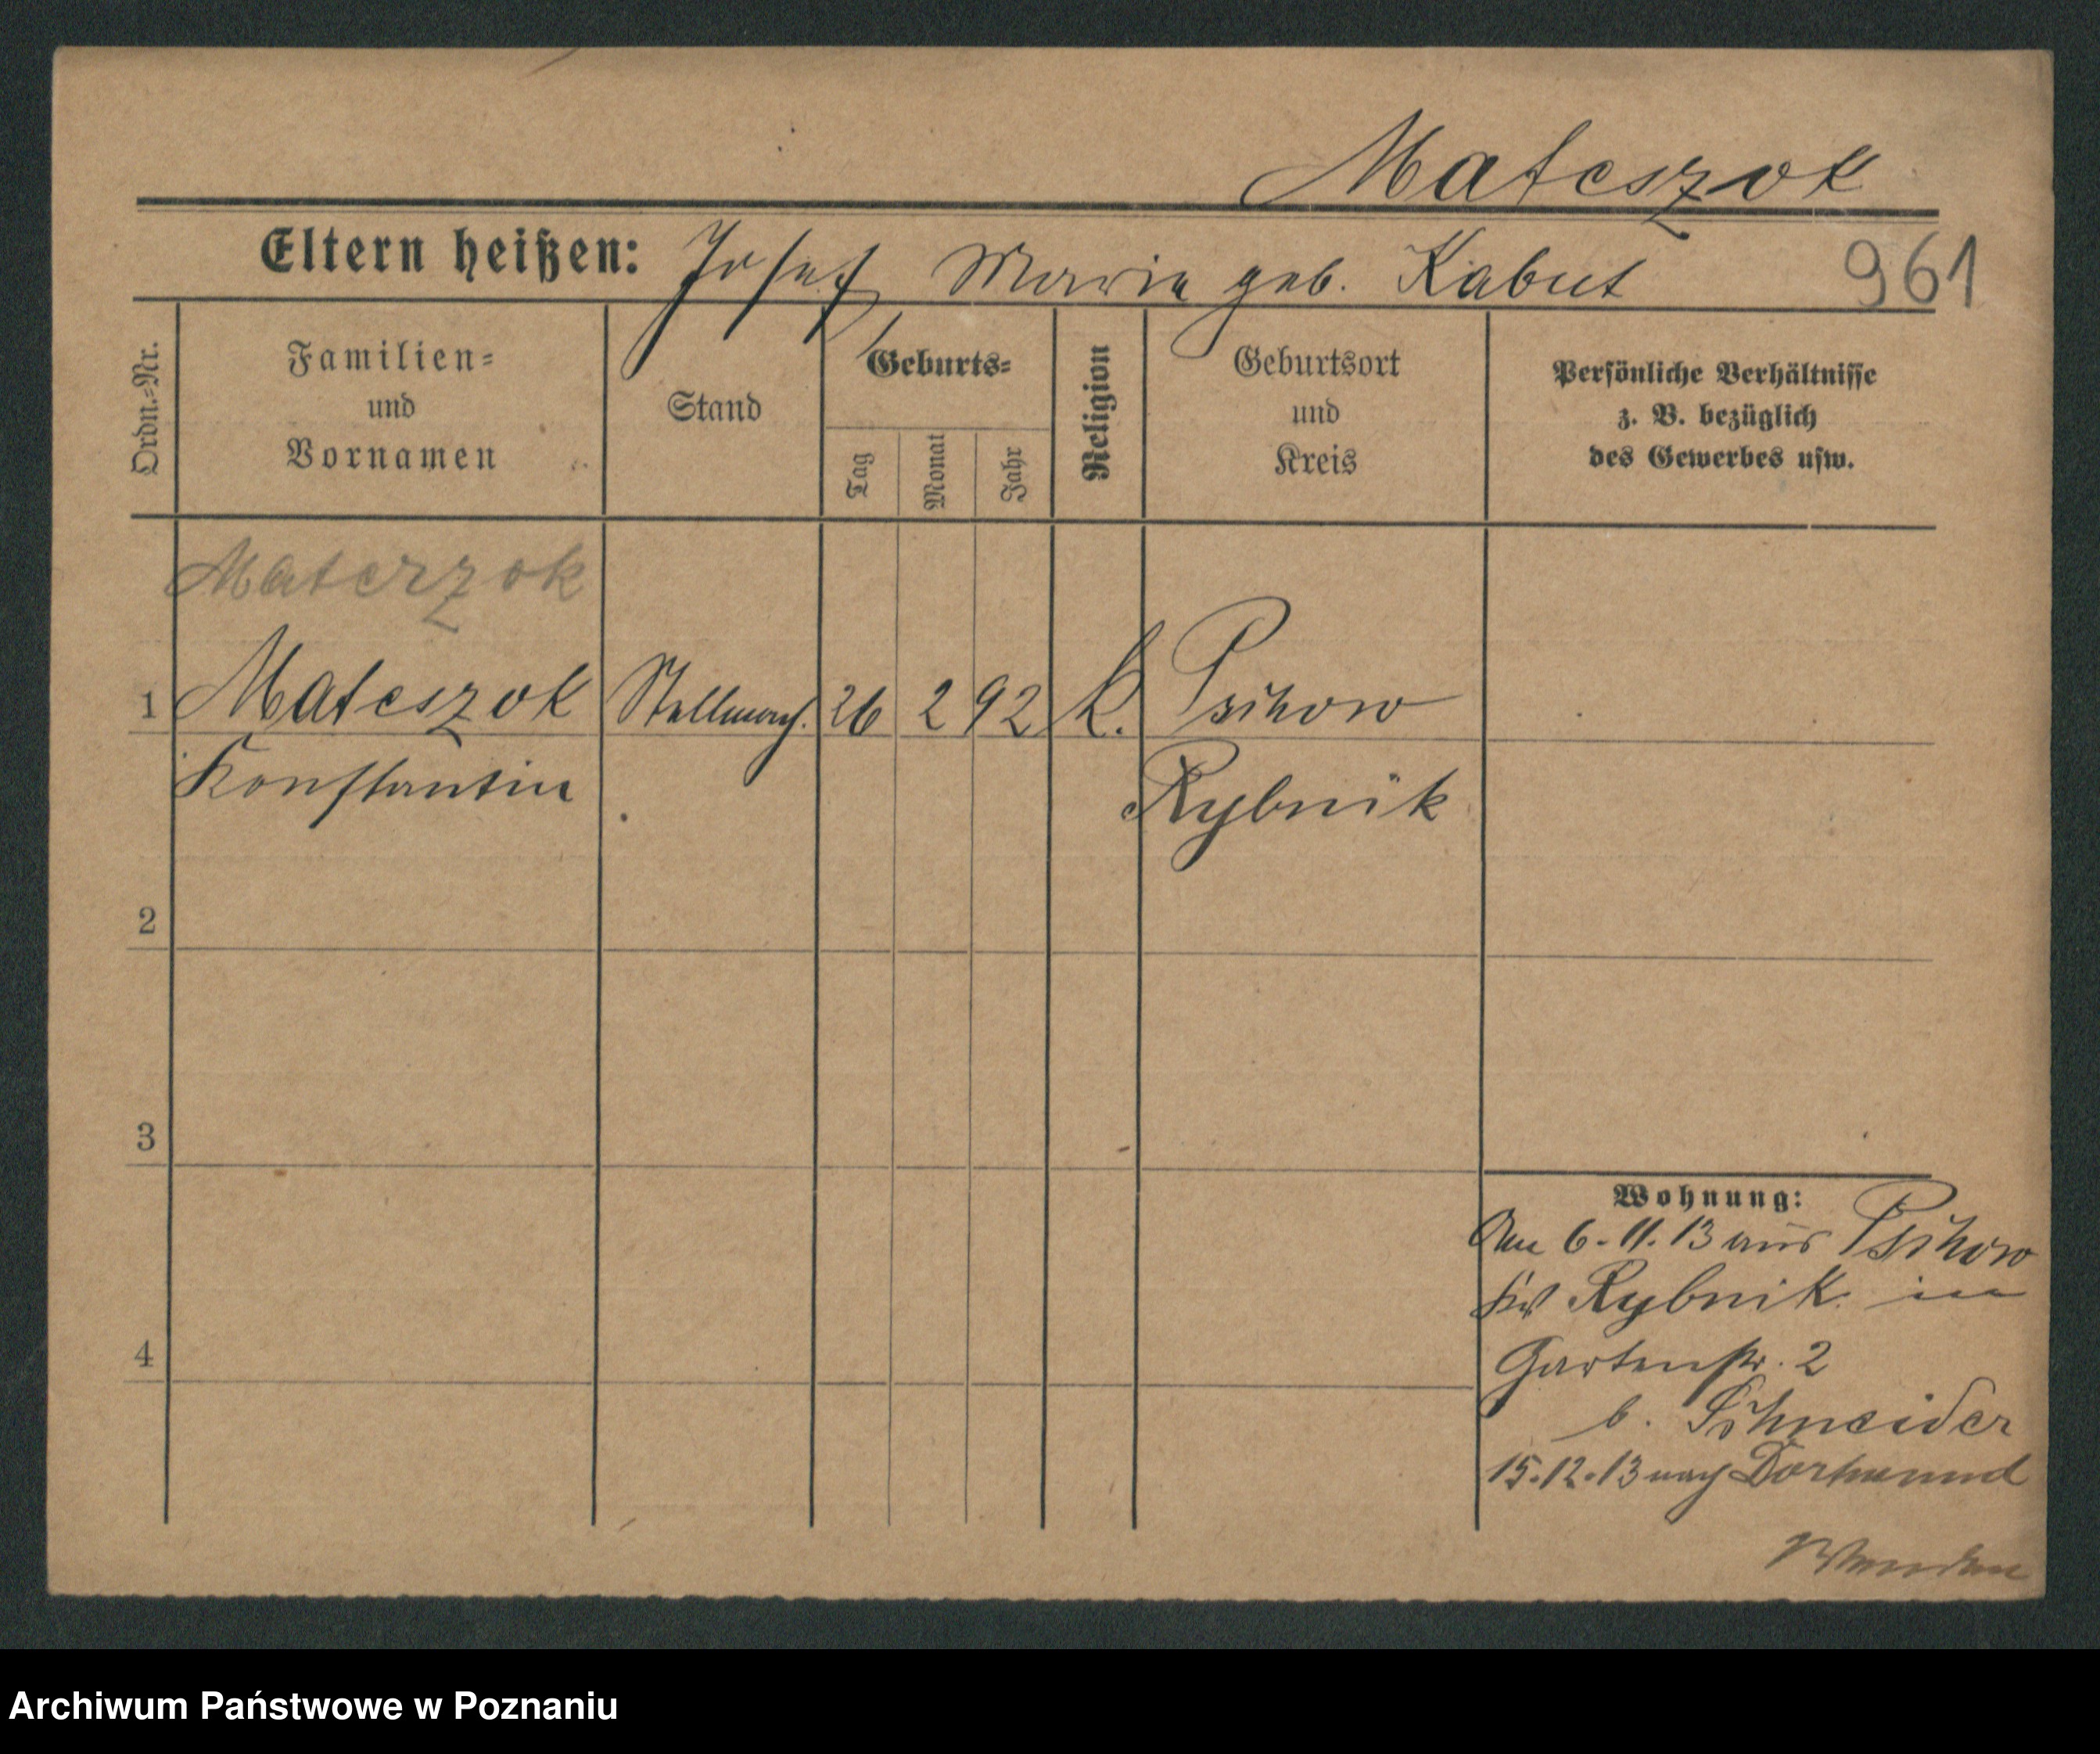 Mateszok
Eltern heißen: Josef Marie geb. Kabut 961
Ordn.-Nr.
Familien-
und
Vornamen
Stand
Geburts-
Tag
Monat
Jahr
Religion
Geburtsort
und
Kreis
Persönliche Verhältnisse
z. B. bezüglich
des Gewerbes usw.
Materzok
1 Mateszok Stellmach. 26 2 92 K. Pschow
Konstantin Rybnik
2
3
4
Wohnung:
Am 6.11.13 aus Pschow
Krs Rybnik in
Gartenstr. 2
b. Schneider
15.12.13 nach Dortmund
Wenden
Archiwum Państwowe w Poznaniu